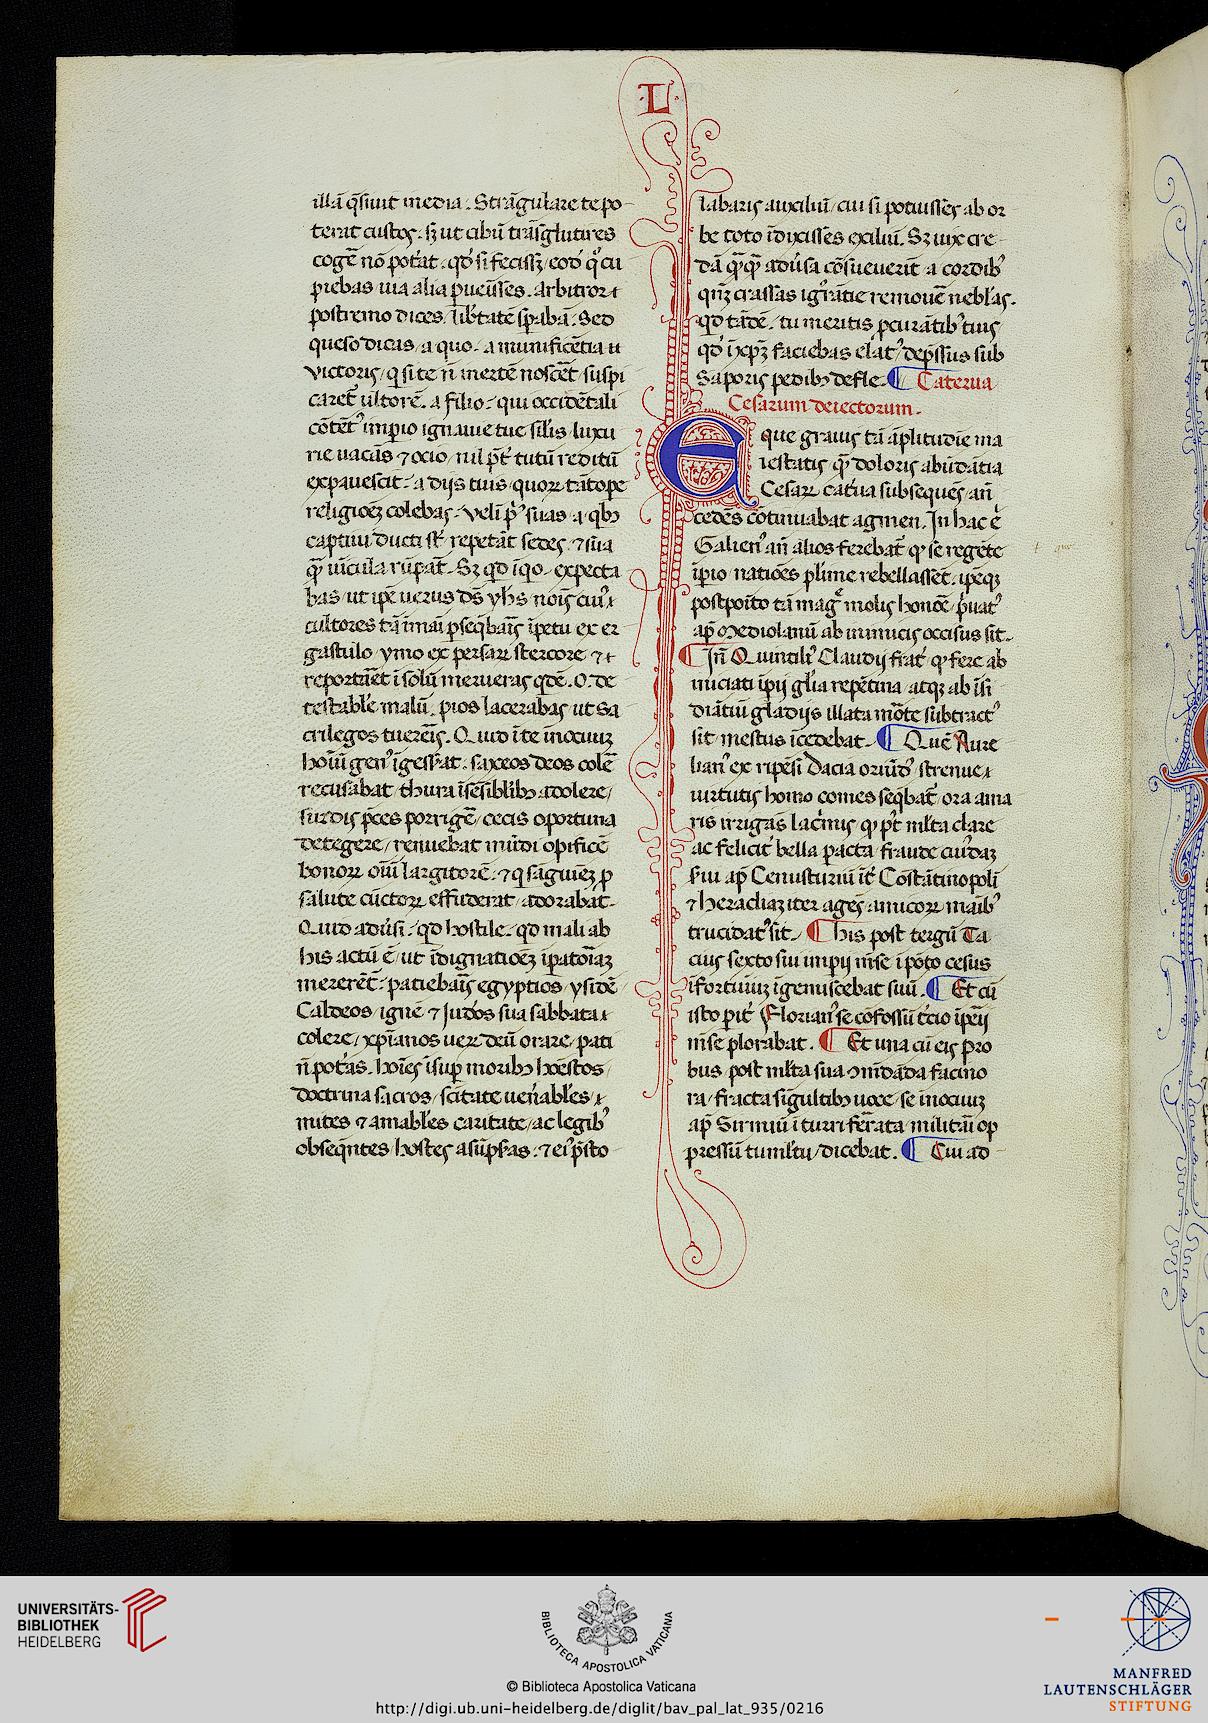 ·L·
illā q̄siuit media. Strāgulare te po
terat custos. sꝫ ut cibū trāsglutires
cogē nō pot̄at. qd̓ si fecissꝫ eod̓ q̓ cu
piebas uia alia ꝓueniss̄es. Arbitror ⁊
postremo dices. lib̓tatē sp̄abā. Sed
queso dicas, a quo. a munificētia
victoris, q si te n̄ inertē noscēt suspi
caret̄ ultorē. a filio. qui occidētali
cōtēt᾿ imperio ignauie tue sil̓is luxu
rie uacās ⁊ ocio, nil p̄t̄ tutū reditū
expauescit. a dijs tuis quoꝝ tātope
religiōeꝫ colebas.
captiui ducti st̄ repetāt sedes, ⁊ sua
uīcula rūpāt. Sꝫ qd̓ īqo. expecta
bas, ut ip̄e uerus ds̄ yhs̄ nois̄ cui᾿
cultores tā īmai p̄seq̄bais̄ īpetu ex er
gastulo ymo ex persaꝝ stercore
reportāet ī solū merueras qdē. O de
testabl̓e malū. pios lacerabas ut sa
crilegos tuereis̄. Quid ī te inocuuꝫ
hoīū gen᾿ īgess̄at. saxeos deos colē
recusabat, thura īsēsiblibꝫ adolere,
surdis p̄ces porrigē, cecis oportuna
detegere, renuebat mūdi opificē
bonoꝝ oīū largitorē. ⁊ q sāguiēꝫ ꝓ
salute cūctoꝝ effuderat, adorabat.
Quid adūsi. qd̓ hostile. qd̓ mali ab
his actū ē, ut īdignatiōeꝫ īpatoīaꝫ
mererēt̄. patiebais̄ egyptios ysidē
Caldeos, ignē ⁊ Judōs sua sabbata
colere, xp̄ianos ueꝝ deū orare, pati
n̄ pot̄as. hoīes īsup̄ moribꝫ hōestos
doctrina sacros, scītate uen̄abl̓es
mites ⁊ amabl̓es caritate, ac legib᾿
obseq̄ntes hostes asūpsas. ⁊ ei᾿ p̄sto
labaris auxiliū, cui si potuissēs ab or
be toto īdixissēs exiliū. Sꝫ uix cre
dā q̄q̄ adūsa cōsueuerit a cordib᾿
qn̄ꝫ crassas ign̄ātie remouē nebl̓as.
qd̓ tādē. tu meritis ꝓcurātib᾿ tuis
qd̓ ī xp̄ꝫ faciebas elat᾿ dep̄ssus sub
Saporis pedibꝫ defle. Caterua
Cesarum deiectorum.
Eque grauis tā āplitudīe ma
iestatis q̄ doloris abūdātia
Cesaꝝ cat̓ua subsequēs, an̄
cedēs cōtinuabat agmen. In hac ē
Galien᾿ an̄ alios ferebat̄ qͥ se regēte
īpio, natiōes pl̄ime rebellassēt. ipēqꝫ
postpoīto tā mag̓ molis honōe p̄uat᾿
ap̄ Mediolanū ab inimicis occisus sit.
In̄ Quintili᾿ Claudij frat̓ qͥ fere ab
nuciati īpij gl̄ia repētina atqꝫ ab īsi
diātiū gladijs illata mōte subtract᾿
sit mestus īcedebat. Quē Aure
lian᾿ ex ripēsi Dacia oriūd᾿ strenue
uirtutis homo comes seq̄bat̄, ora ama
ris irrigās lacīmis qͥ p̄t ml̓ta clare
ac felicit̓ bella pacta, fraude cuīdaꝫ
s̓ui ap̄ Cenusturiū īt̓ Cōstātinopoli
⁊ heracliaꝫ iter agēs, amicoꝝ māib᾿
trucidat᾿ sit. his post tergū Ta
cius sexto sui impij mīse ī pōto cesus
īfortuniuꝫ īgemiscebat suū. Et cū
isto pit̓ Florian᾿ se cōfossū t̓cio īpēij
mīse plorabat. Et una cū eis Pro
bus, post ml̓ta sua ꝯmīdāda facino
ra, fracta sīgultibꝫ uoce, se īnocuuꝫ
ap̄ Sirmiū ī turri fērata, militāi op
pressū tuml̓tu, dicebat. Cui ad
UNIVERSITÄTS-
BIBLIOTHEK
HEIDELBERG
BIBLIOTECA APOSTOLICA VATICANA
© Biblioteca Apostolica Vaticana
http://digi.ub.uni-heidelberg.de/diglit/bav_pal_lat_935/0216
MANFRED
LAUTENSCHLÄGER
STIFTUNG